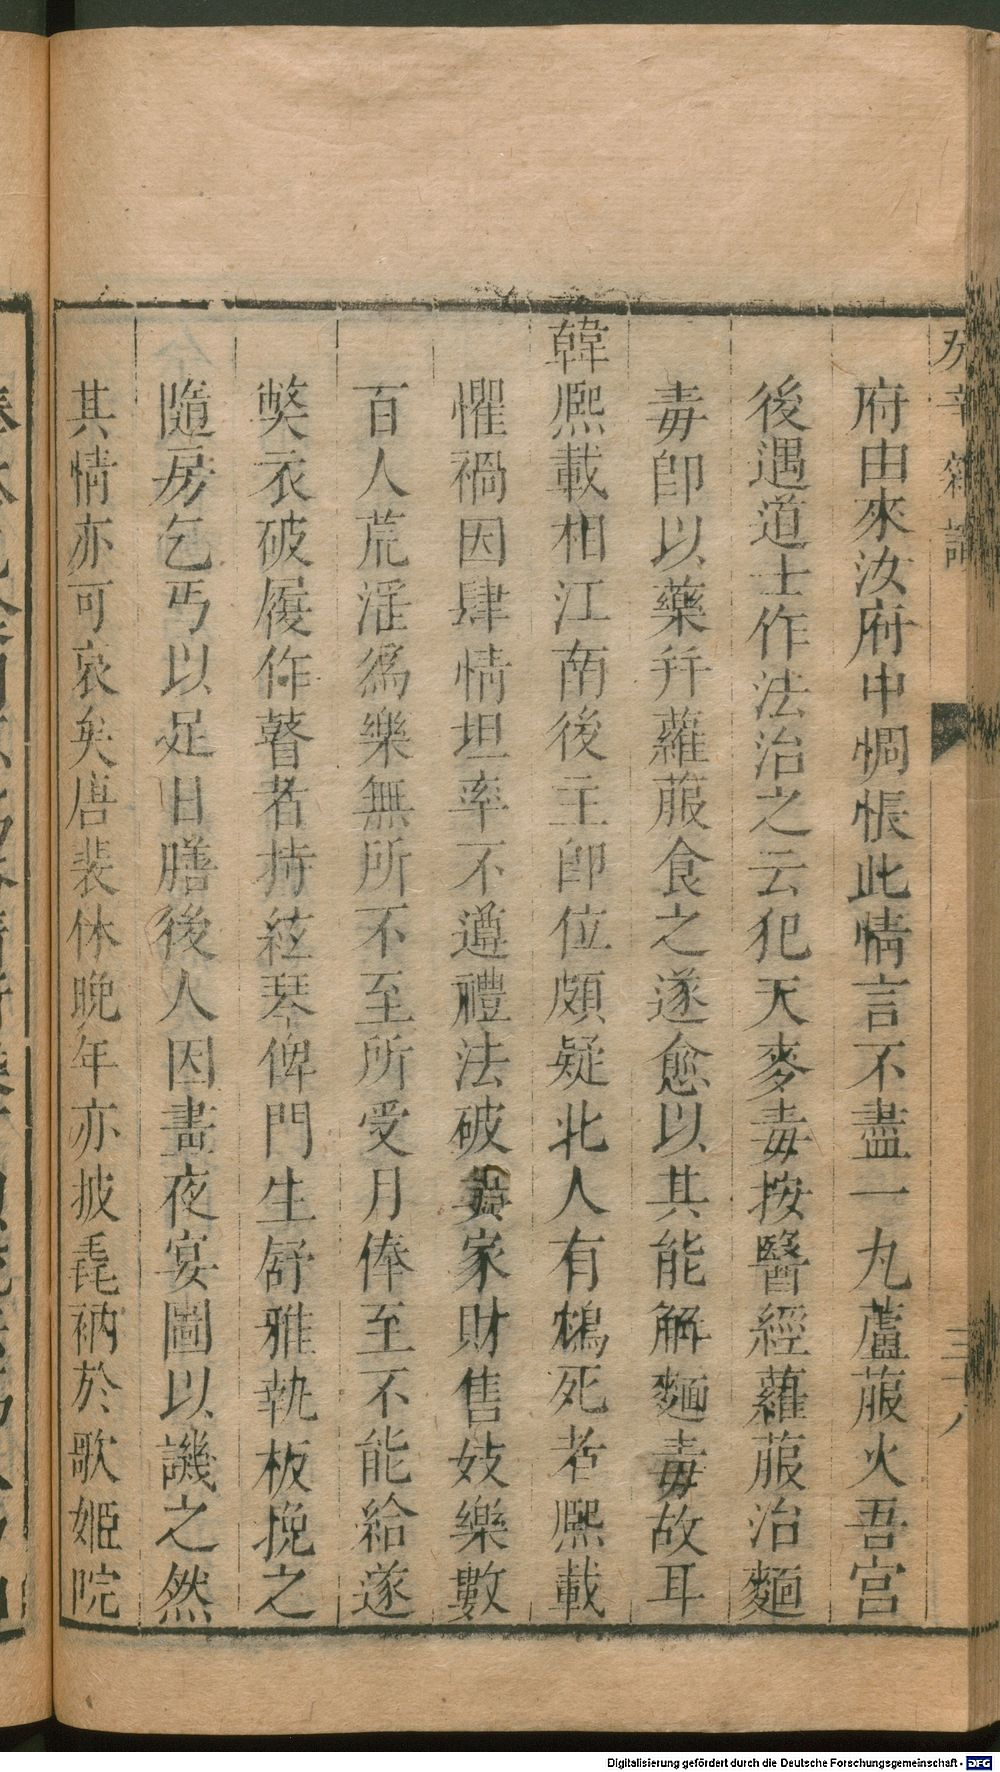 癸辛雜識
三十八
府由來汝府中惆悵此情言不盡一丸蘆菔火吾宮
後遇道士作法治之云犯天麥毒按醫經蘿菔治麵
毒卽以藥幷蘿菔食之遂愈以其能解麵毒故耳
韓熙載相江南後主卽位頗疑北人有鴆死者熙載
懼禍因肆情坦率不遵禮法破其家財售妓樂數
百人荒淫爲樂無所不至所受月俸至不能給遂
獘衣破履作瞽者持絃琴俾門生舒雅執板挽之
隨房乞丐以足日膳後人因畫夜宴圖以譏之然
其情亦可哀矣唐裴休晚年亦披毳衲於歌姬院
Digitalisierung gefördert durch die Deutsche Forschungsgemeinschaft - DFG